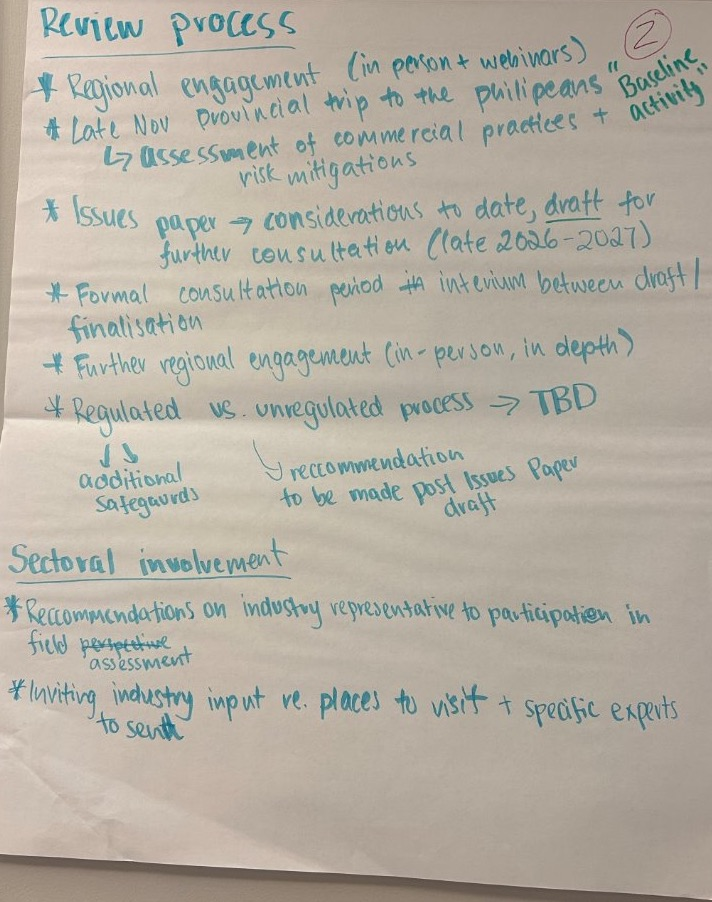 Review process
2
* Regional engagement (in person + webinars)
* Late Nov provincial trip to the philipeans "Baseline activity"
↳ assessment of commercial practices +
risk mitigations
* Issues paper → considerations to date, draft for
further consultation (late 2026-2027)
* Formal consultation period in interium between draft/
finalisation
* Further regional engagement (in-person, in depth)
* Regulated vs. unregulated process → TBD
↓↓
additional
safegaurds
↳ reccommendation
to be made post Issues Paper
draft
Sectoral involvement
* Reccommendations on industry representative to participation in
field perspective
assessment
* Inviting industry input re. places to visit + specific experts
to send